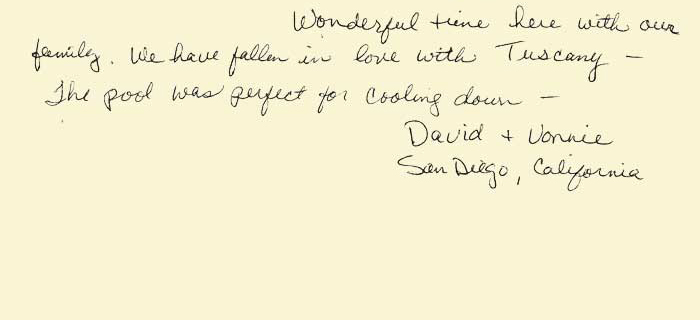 Wonderful time here with our
family. We have fallen in love with Tuscany –
The pool was perfect for cooling down –
David + Vonnie
San Diego, California